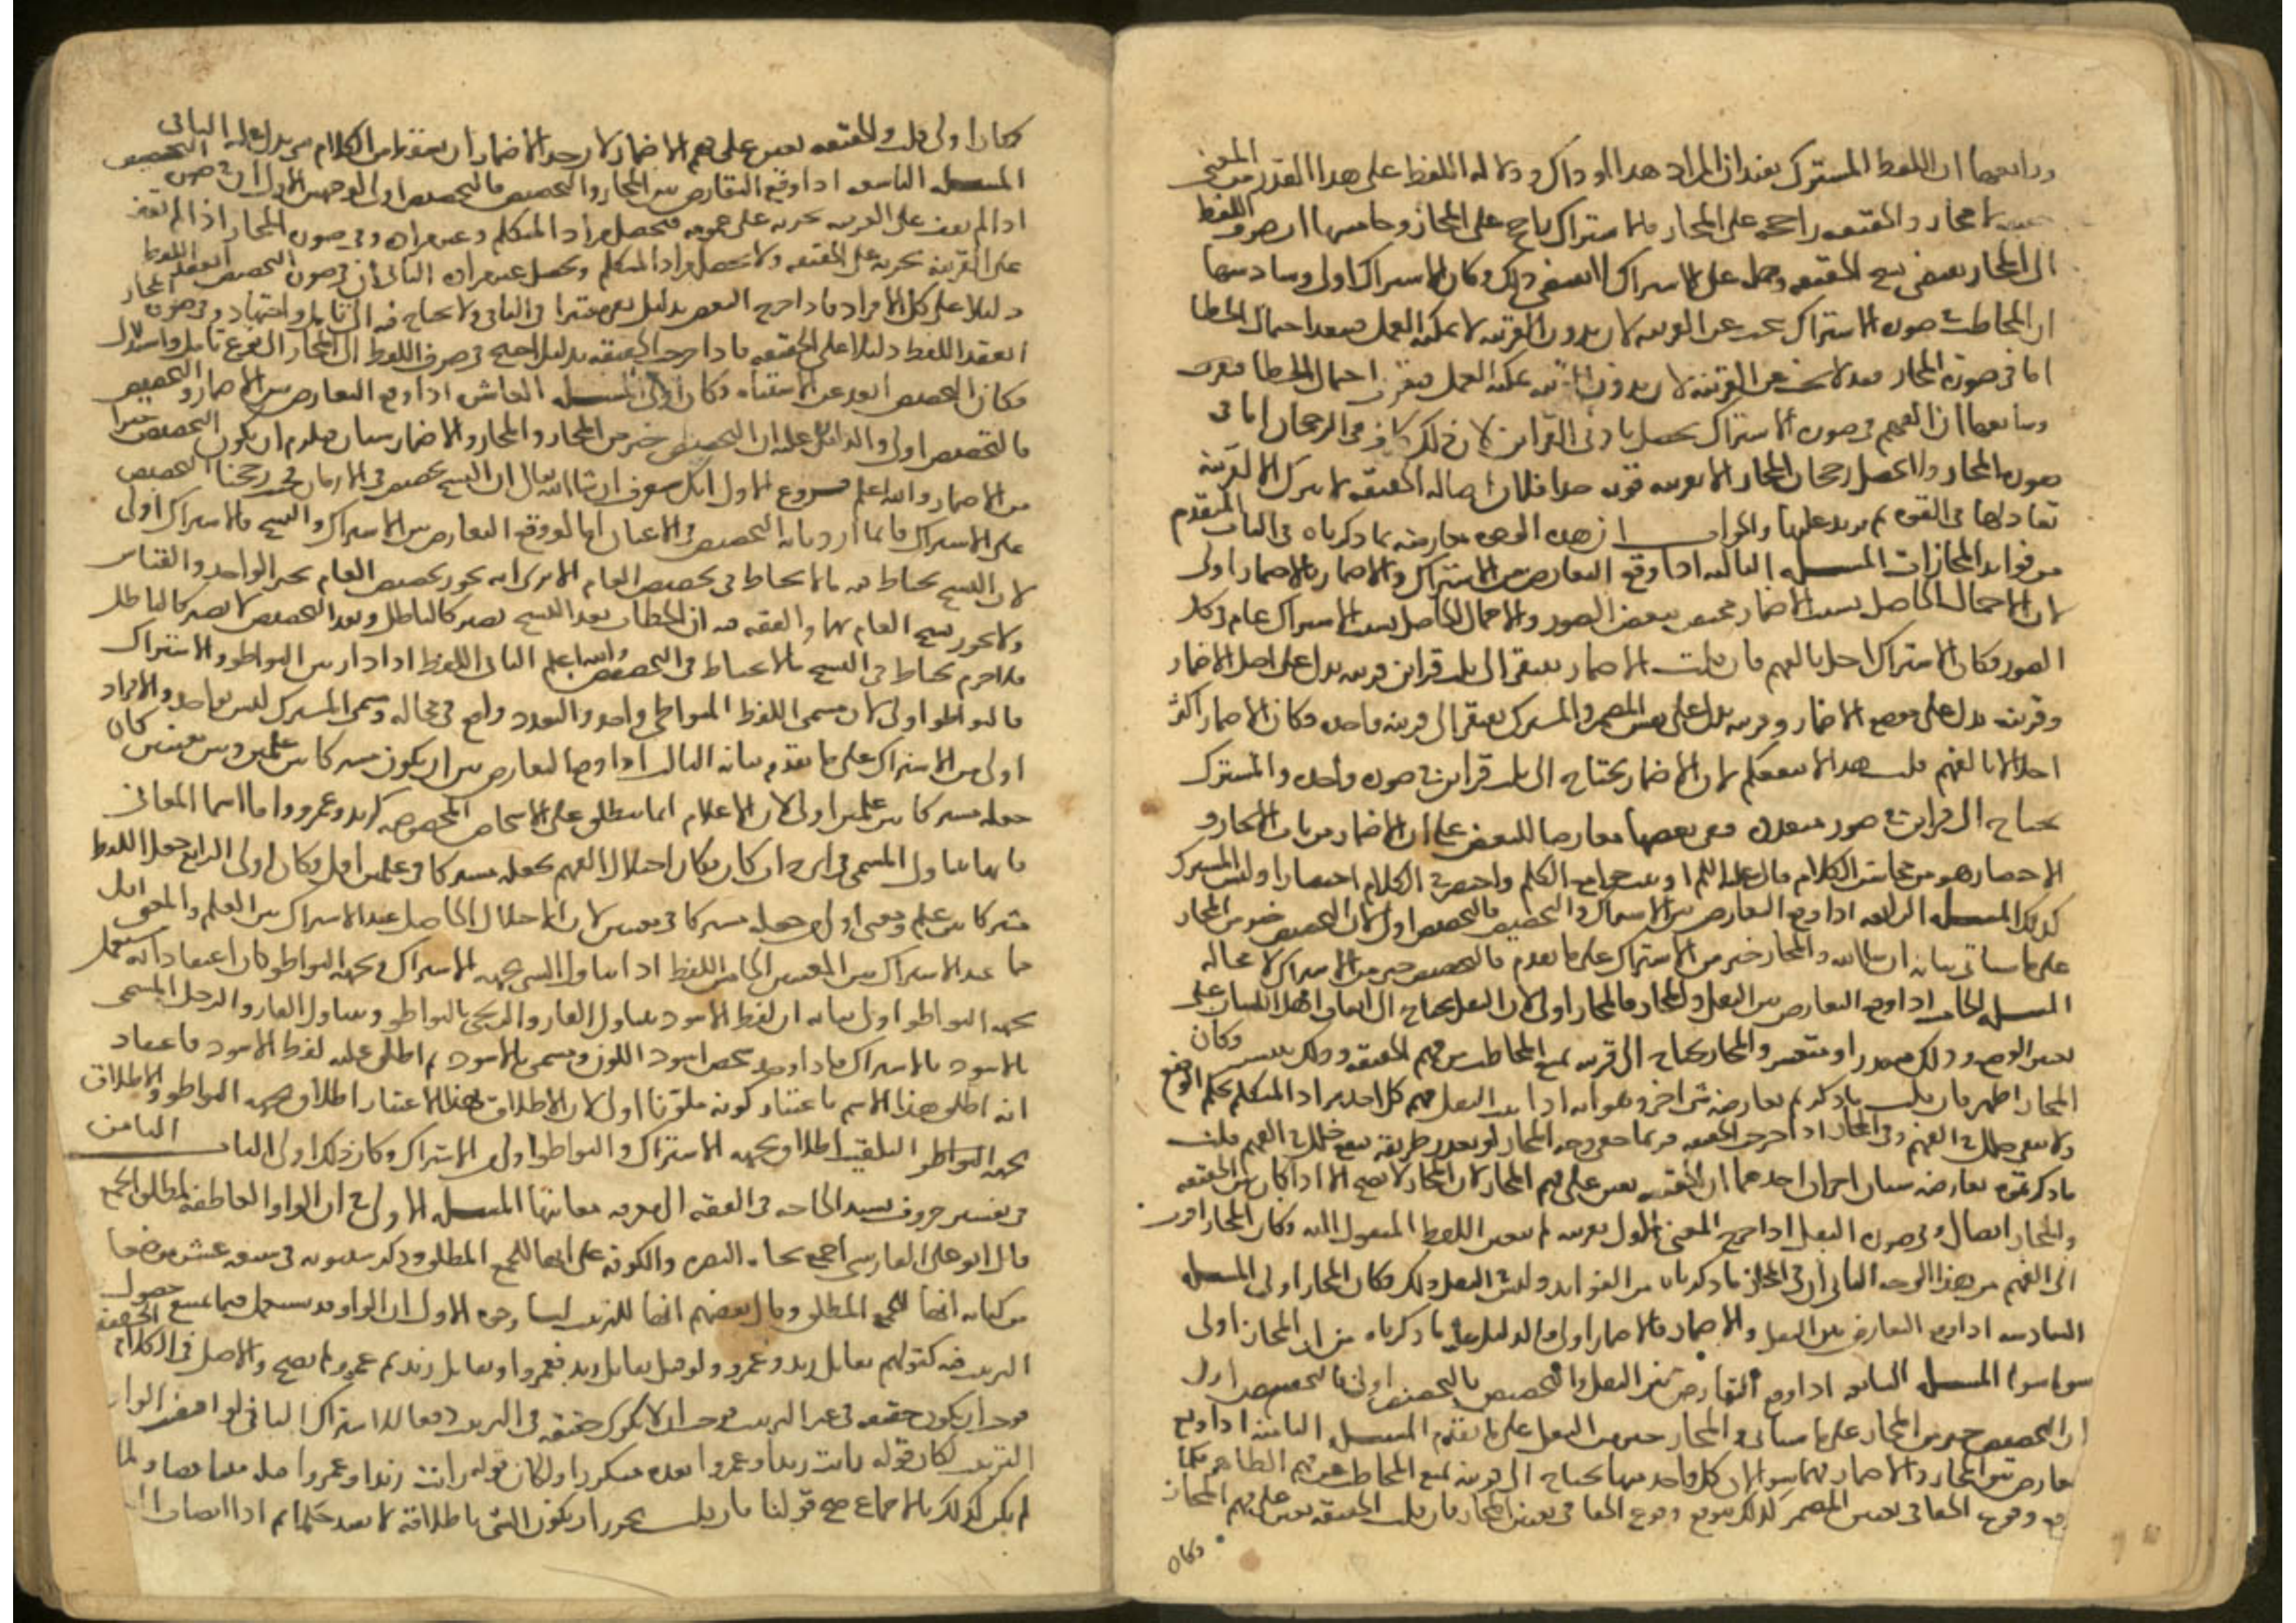 ورابعها ان اللفظ المشترك يفيد ان المراد هذا او ذاك ودلالة اللفظ على هذا القدر من المعنى
حقيقة لا مجاز والحقيقة راجحة على المجاز فالاشتراك راجح على المجاز وخامسها ان صرف اللفظ
الى المجاز يقتضى نسخ الحقيقة وحمله على الاشتراك لا يقتضى ذلك وكان الاشتراك اولى وسادسها
ان المخاطب فى صورة الاشتراك يبحث عن القرينة لان بدون القرينة لا يمكنه العمل فيبعد احتمال الخطا
اما فى صورة المجاز فقد لا يبحث عن القرينة لان بدون القرينة يمكنه العمل فيقرب احتمال الخطا
وسابعها ان الفهم فى صورة الاشتراك يحصل بادنى القراين لان ذلك كاف فى الرجحان اما فى
صورة المجاز فلا يحصل رجحان المجاز الا بقرينة قوية جدا فلان اصالة الحقيقة لا تترك الا لقرينة
تعادلها فى القوة ثم تزيد عليها والجواب ان هذه الوجوه معارضة بما ذكرناه فى الباب المتقدم
من فوايد المجازات المسلة الثالثة اذا وقع التعارض بين الاشتراك والاضمار فالاضمار اولى
لان الاجمال الحاصل بسبب الاضمار مختص ببعض الصور والاجمال الحاصل بسبب الاشتراك عام فى كل
الصور فكان الاشتراك اخل بالفهم فان قلت الاضمار يفتقر الى ثلث قراين قرينة تدل على اصل الاضمار
وقرينة تدل على موضع الاضمار وقرينة تدل على نفس المضمر والمشترك يفتقر الى قرينة واحدة فكان الاضمار اكثر
اخلالا بالفهم قلت هذا لا ينفعكم لان الاضمار يحتاج الى ثلث قراين فى صورة واحدة والمشترك
يحتاج الى قراين فى صور متعددة فبقى بعضها معارضا للبعض على ان الاضمار من باب الايجاز و
الاختصار وهو من محاسن الكلام قال عليه السلم اوتيت جوامع الكلم واختصر لى الكلام اختصارا وليس المشترك
كذلك المسلة الرابعة اذا وقع التعارض بين الاشتراك والتخصيص فالتخصيص اولى لان التخصيص خير من المجاز
على ما سياتى بيانه ان شا الله والمجاز خير من الاشتراك على ما تقدم فالتخصيص خير من الاشتراك لا محالة
المسلة الخامسة اذا وقع التعارض بين النقل والمجاز فالمجاز اولى لان النقل يحتاج الى اتفاق اهل اللسان على
تغيير الوضع وذلك متعذر او متعسر والمجاز يحتاج الى قرينة تمنع المخاطب من فهم الحقيقة وذلك متيسر فكان
المجاز اظهر فان قلت ما ذكرتم تعارضه شى اخر وهو انه اذا ثبت النقل فهم كل احد مراد المتكلم بحكم الوضع
ولا يبقى خلل فى الفهم وفى المجاز اذا خرجت الحقيقة فربما خفى وجه المجاز او تعدد طريقه فيقع خلل فى الفهم قلت
ما ذكرتموه تعارضه شيان اخران احدهما ان الحقيقة تعين على فهم المجاز لان المجاز لا يصح الا اذا كان بين الحقيقة
والمجاز اتصال وفى صورة النقل اذا خرج المعنى الاول بقرينة لم يتعين اللفظ المنقول اليه وكان المجاز اقرب
الى الفهم من هذا الوجه الثانى ان فى المجاز ما ذكرناه من الفوايد وليس فى النقل ذلك فكان المجاز اولى المسلة
السادسة اذا وقع التعارض بين النقل والاضمار فالاضمار اولى والدليل عليه ما ذكرناه من ان المجاز اولى
سوا سوا المسلة السابعة اذا وقع التعارض بين النقل والتخصيص فالتخصيص اولى
ان التخصيص خير من المجاز على ما سياتى والمجاز خير من النقل على ما تقدم المسلة الثامنة اذا وقع
التعارض بين المجاز والاضمار فهما سوا لان كل واحد منهما يحتاج الى قرينة تمنع المخاطب عن فهم الظاهر فكما
وقوع الخفا فى تعيين المضمر كذلك يتوقع وقوع الخفا فى تعيين المجاز فان قلت الحقيقة تعين على فهم المجاز
فكان
فكان اولى قلت والحقيقة تعين على فهم الاضمار لان حد الاضمار ان يسقط من الكلام شى يدل عليه الباقى
المسلة التاسعة اذا وقع التعارض بين المجاز والتخصيص فالتخصيص اولى لوجهين الاول ان فى صورة التخصيص
اذا لم يقف على القرينة يجريه على عمومه فيحصل مراد المتكلم وغير مراده وفى صورة المجاز اذا لم يقف
على القرينة يجريه على الحقيقة ولا يحصل مراد المتكلم ويحصل غير مراده الثانى ان فى صورة التخصيص انعقد اللفظ
دليلا على كل الافراد فاذا خرج البعض بدليل بقى معتبرا فى الباقى ولا يحتاج فيه الى تامل واجتهاد وفى صورة المجاز
انعقد اللفظ دليلا على الحقيقة فاذا خرجت الحقيقة بدليل احتيج فى صرف اللفظ الى المجاز الى نوع تامل واستدلال
فكان التخصيص ابعد عن الاشتباه فكان اولى المسلة العاشرة اذا وقع التعارض بين الاضمار والتخصيص
فالتخصيص اولى والدليل عليه ان التخصيص خير من المجاز والمجاز والاضمار سيان فيلزم ان يكون التخصيص خيرا
من الاضمار والله اعلم فروع الاول انك ستعرف ان شا الله تعالى ان النسخ تخصيص فى الازمان فحيث رجحنا التخصيص
على الاشتراك فانما اردنا به التخصيص فى الاعيان اما لو وقع التعارض بين الاشتراك والنسخ فالاشتراك اولى
لان النسخ يحتاط فيه ما لا يحتاط فى تخصيص العام الا ترى انه يجوز تخصيص العام بخبر الواحد والقياس
ولا يجوز نسخ العام بهما والفقه فيه ان الخطاب بعد النسخ يصير كالباطل وبعد التخصيص لا يصير كالباطل
فلا جرم يحتاط فى النسخ ما لا يحتاط فى التخصيص والله اعلم الثانى اللفظ اذا دار بين التواطو والاشتراك
فالتواطو اولى لان مسمى اللفظ المتواطى واحد والتعدد واقع فى محاله ومسمى المشترك ليس بواحد والافراد
اولى من الاشتراك على ما تقدم بيانه الثالث اذا وقع التعارض بين ان يكون مشتركا بين علمين وبين معنيين كان
جعله مشتركا بين علمين اولى لان الاعلام انما ينطلق على الاشخاص المخصوصة كزيد وعمرو واما اسما المعانى
فانها تتناول المسمى فى اى ذات كان فكان اختلال الفهم بجعله مشتركا فى علمين اقل فكان اولى الرابع جعل اللفظ
مشتركا بين علم ومعنى اولى من جعله مشتركا فى معنيين لان الاخلال الحاصل عند الاشتراك بين العلم والمعنى اقل
مما عند الاشتراك بين المعنيين الخامس اللفظ اذا تناول الشى بجهة الاشتراك وبجهة التواطو كان اعتقاد انه مستعمل
بجهة التواطو اولى بيانه ان لفظ الاسود يتناول القار والزنجى بالتواطو ويتناول القار والرجل المسمى
بالاسود بالاشتراك فاذا وجد شخص اسود اللون ويسمى بالاسود ثم اطلق عليه لفظ الاسود فاعتقاد
انه اطلق هذا الاسم باعتبار كونه ملونا اولى لان الاطلاق بهذا الاعتبار اطلاق بجهة التواطو والاطلاق
بجهة التلقيب اطلاق بجهة الاشتراك والتواطو اولى من الاشتراك وكان ذلك اولى الباب الثامن
فى تفسير حروف تشتد الحاجة فى الفقه الى معرفة معانيها المسلة الاولى فى ان الواو العاطفة لمطلق الجمع
قال ابو على الفارسى اجمع نحاة البصرة والكوفة على انها للجمع المطلق وذكر سيبويه فى سبعة عشر موضعا
من كتابه انها للجمع المطلق وقال بعضهم انها للترتيب لنا وجوه الاول ان الواو قد تستعمل فيما يمتنع حصول
الترتيب فيه كقولهم تقاتل زيد وعمرو ولو قيل تقاتل زيد فعمرو او تقاتل زيد ثم عمرو لم يصح والاصل فى الكلام الحقيقة
فوجب ان يكون حقيقة فى غير الترتيب فوجب ان لا يكون حقيقة فى الترتيب دفعا للاشتراك الثانى لو اقتضت الواو
الترتيب لكان قوله رايت زيدا وعمروا بعده تكريرا ولكان قوله رايت زيدا وعمروا قبله متناقضا ولما
لم يكن كذلك بالاجماع صح قولنا فان قلت يجوز ان يكون الشى باطلاقه لا يفيد حكما ثم اذا